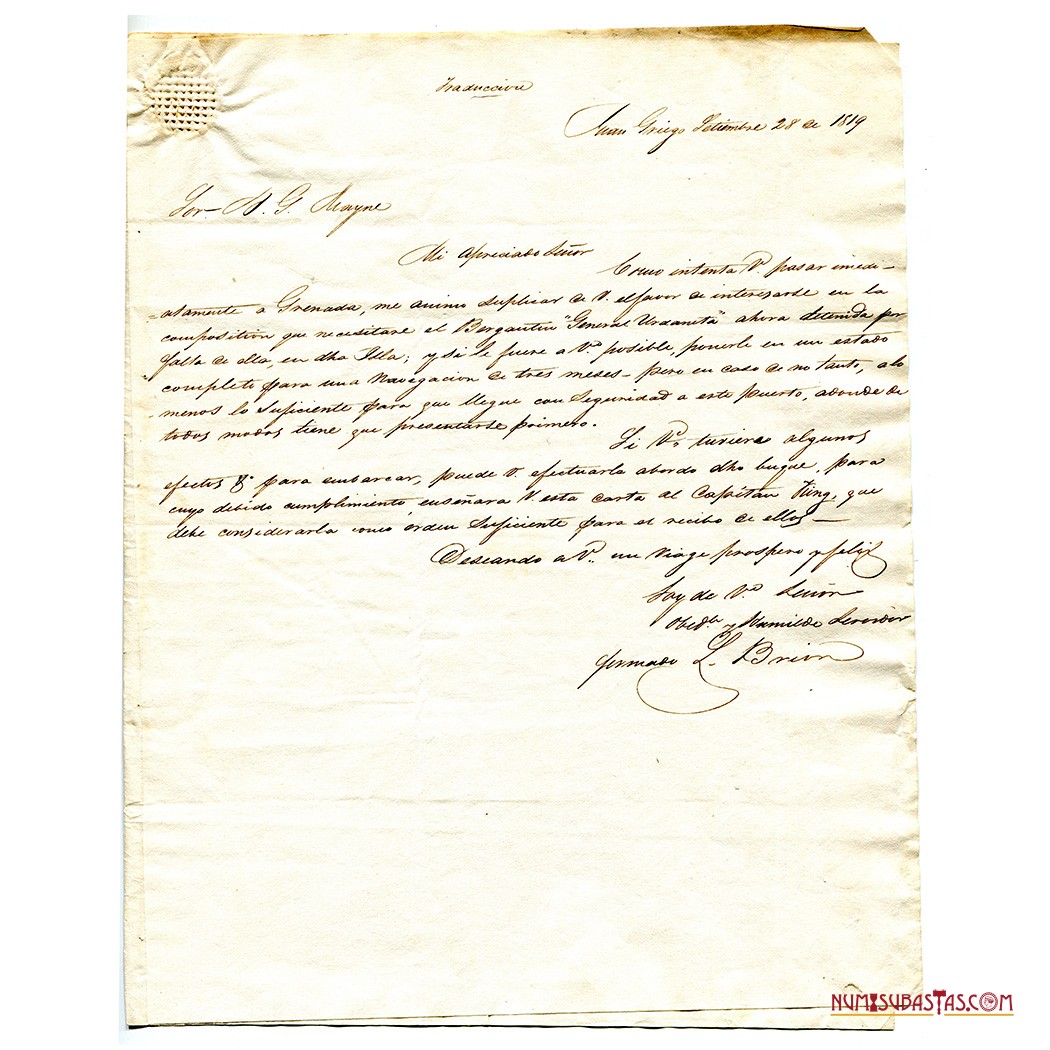 Traduccion
Juan Griego Setiembre 28 de 1819
Sor- A. G. Mayne
Mi Apreciado Señor
Como intenta Vd. pasar imedi-
-atamente a Grenada, me animo suplicar de V. el favor de interesarse en la
composition que necesitare el Bergantin "General Urdaneta" ahora detenida por
falta de ella, en dha Isla; y si le fuere a Vd. posible, ponerle en un estado
completo para una Navegacion de tres meses- pero en caso de no tanto, a lo
-menos lo suficiente para que llegue con Seguridad a este puerto, adonde de
todos modos tiene que presentarse primero.
Si Vd. tuviera algunos
efectos &a para embarcar, puede V efectuarla abordo dho buque, para
cuyo debido cumplimiento enseñara V esta carta al Capitan King, que
debe considerarla como orden suficiente para el recibo de ellos-
Deseando a Vd. un viage prospero y feliz
Soy de Vd. Señor
Obedte y Humilde Servidor
firmado L. Brion
NUMISUBASTAS.COM